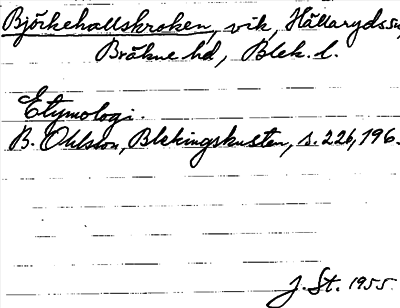 Björkehallskroken, vik, Hällaryds sn,
Bräkne hd, Blek. l.
Etymologi.
B. Ohlsson, Blekingskusten, s. 226, 196.
J. St. 1955